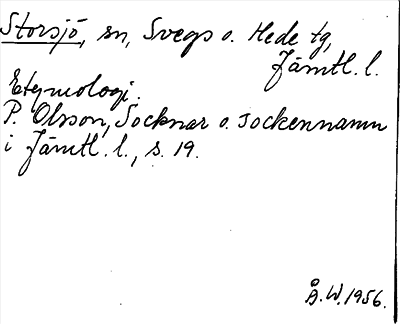 Storsjö, sn, Svegs o. Hede tg,
Jämtl. l.
Etymologi.
P. Olsson, Socknar o. sockennamn
i Jämtl. l., s. 19.
Å.W. 1956.